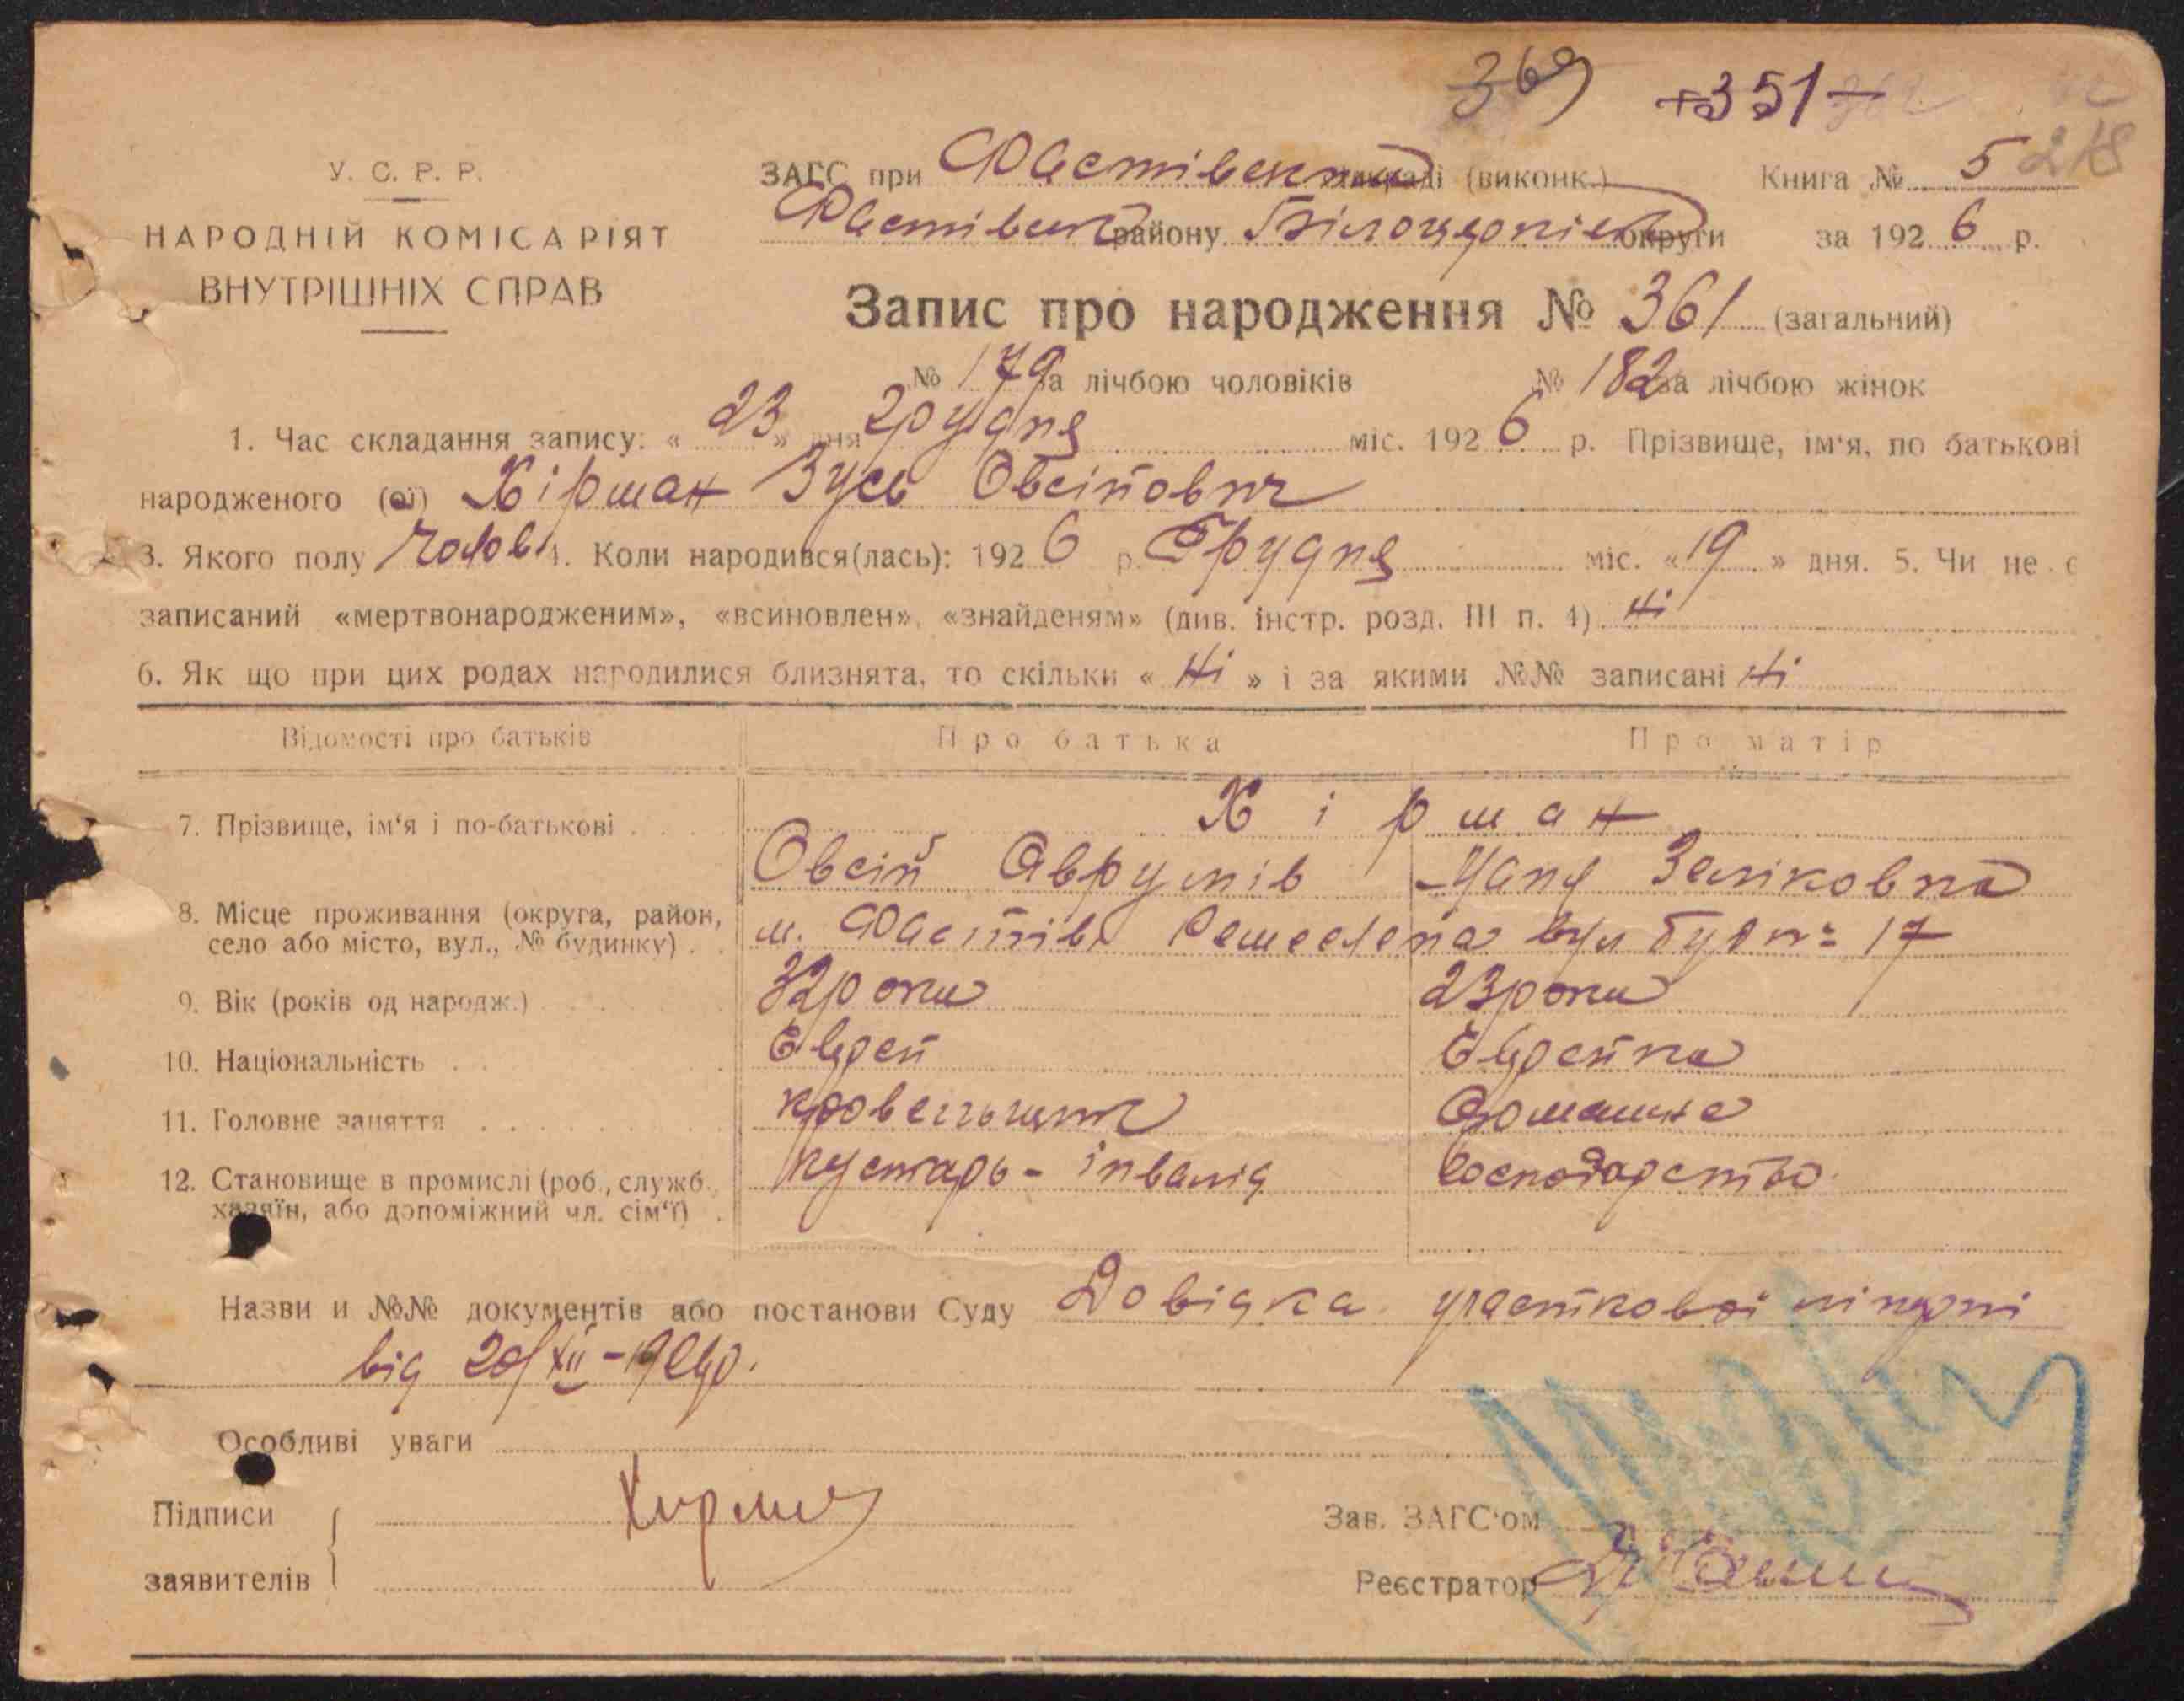 369 351
У. С. Р. Р.
НАРОДНІЙ КОМІСАРІЯТ
ВНУТРІШНІХ СПРАВ
ЗАГС при Фастівськ (виконк.) Книга № 5
Фастівськ району Білоцерків округи за 192 6 р.
Запис про народження № 361 (загальний)
№ 179 за лічбою чоловіків № 182 за лічбою жінок
1. Час складання запису: « 23 » дня грудня міс. 192 6 р. Прізвище, ім'я, по батькові
народженого (ої) Хірман Зусь Овсійович
3. Якого полу Чолов 4. Коли народився(лась): 192 6 р. Грудня міс. « 19 » дня. 5. Чи не є
записаний «мертвонародженим», «всиновлен», «знайденям» (див. інстр. розд. III п. 4) Ні
6. Як що при цих родах народилися близнята, то скільки « Ні » і за якими №№ записані Ні
Відомості про батьків Про батька Про матір
7. Прізвище, ім'я і по-батькові . . . . Хірман
Овсій Аврумів Зеліковна
8. Місце проживання (округа, район,
село або місто, вул., № будинку) . . м. Фастів вул буд № 17
9. Вік (років од народж.) 32 роки 23 роки
10. Національність Еврей Еврейка
11. Головне заняття кровельщик Домашнє
12. Становище в промислі (роб., служб.,
хазяїн, або допоміжний чл. сім'ї) . кустарь - інвалід господарство
Назви и №№ документів або постанови Суду Довідка участкової лікарні
від 20/XII - 192 р.
Особливі уваги
Підписи
заявителів
Зав. ЗАГС'ом
Реєстратор